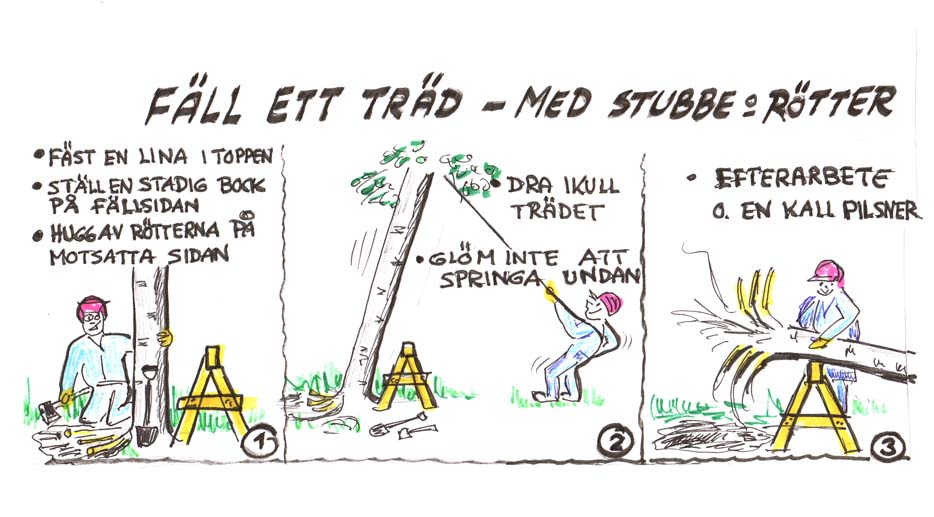 FÄLL ETT TRÄD – MED STUBBE O RÖTTER
• FÄST EN LINA I TOPPEN
• STÄLL EN STADIG BOCK
PÅ FÄLLSIDAN
• HUGG AV RÖTTERNA PÅ
MOTSATTA SIDAN
1
• DRA IKULL
TRÄDET
• GLÖM INTE ATT
SPRINGA UNDAN
2
• EFTERARBETE
O. EN KALL PILSNER
3